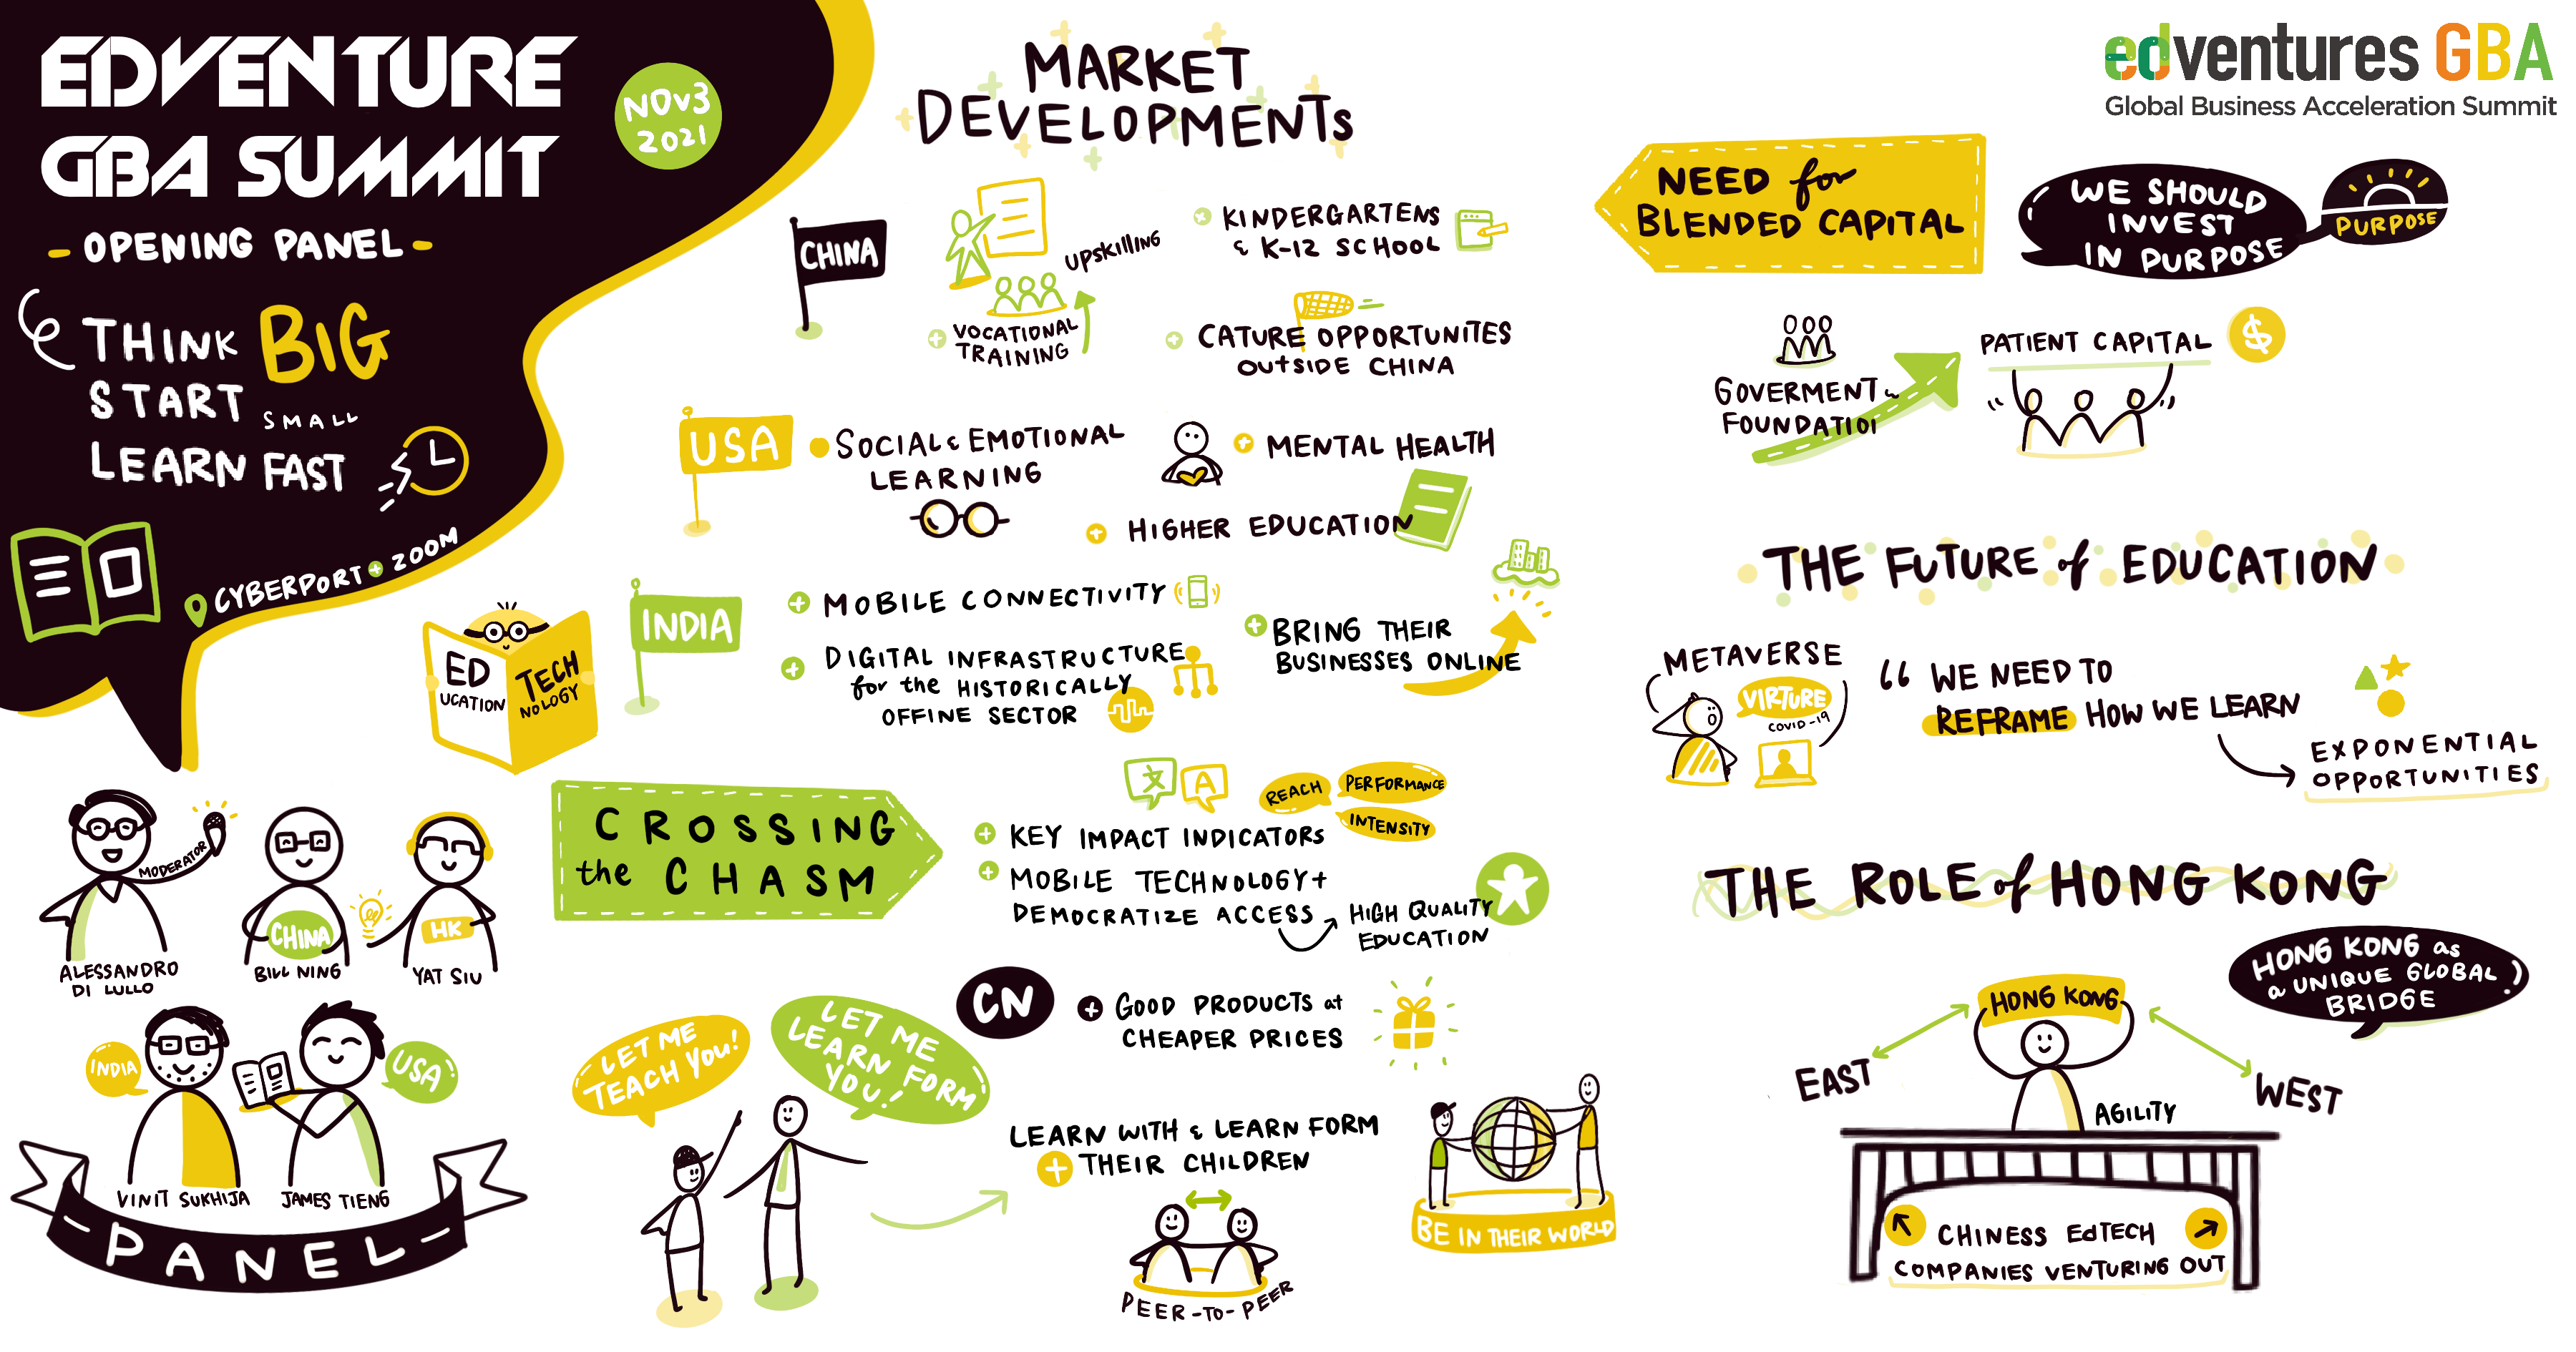 EDVENTURE
GBA SUMMIT
- OPENING PANEL -
NOV3
2021
THINK BIG
START SMALL
LEARN FAST
CYBERPORT + ZOOM
ED
UCATION
TECH
NOLOGY
MODERATOR
ALESSANDRO
DI LULLO
CHINA
BILL NING
HK
YAT SIU
INDIA
VINIT SUKHIJA
USA
JAMES TIENG
- PANEL -
MARKET
DEVELOPMENTS
CHINA
UPSKILLING
+ VOCATIONAL
TRAINING
+ KINDERGARTENS
& K-12 SCHOOL
+ CATURE OPPORTUNITES
OUTSIDE CHINA
USA
SOCIAL & EMOTIONAL
LEARNING
+ MENTAL HEALTH
+ HIGHER EDUCATION
INDIA
+ MOBILE CONNECTIVITY
+ DIGITAL INFRASTRUCTURE
for the HISTORICALLY
OFFINE SECTOR
+ BRING THEIR
BUSINESSES ONLINE
CROSSING
the CHASM
文 A
REACH
PERFORMANCE
INTENSITY
+ KEY IMPACT INDICATORS
+ MOBILE TECHNOLOGY +
DEMOCRATIZE ACCESS
HIGH QUALITY
EDUCATION
CN
+ GOOD PRODUCTS at
CHEAPER PRICES
LET ME
TEACH YOU!
LET ME
LEARN FORM
YOU!
LEARN WITH & LEARN FORM
+ THEIR CHILDREN
PEER-TO-PEER
BE IN THEIR WORLD
edventures GBA
Global Business Acceleration Summit
NEED for
BLENDED CAPITAL
WE SHOULD
INVEST
IN PURPOSE
PURPOSE
GOVERMENT &
FOUNDATIOI
PATIENT CAPITAL
$
THE FUTURE of EDUCATION
METAVERSE
VIRTURE
COVID-19
“ WE NEED TO
REFRAME HOW WE LEARN
EXPONENTIAL
OPPORTUNITIES
THE ROLE of HONG KONG
HONG KONG as
a UNIQUE GLOBAL
BRIDGE
HONG KONG
EAST
WEST
AGILITY
CHINESS EDTECH
COMPANIES VENTURING OUT